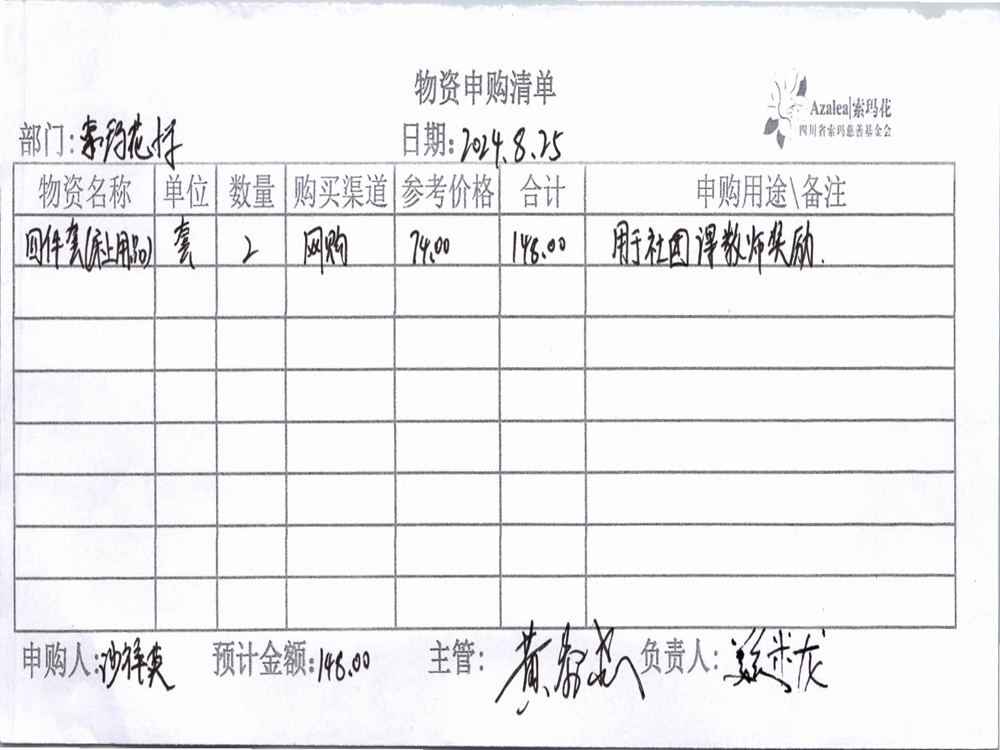 物资申购清单
Azalea|索玛花
四川省索玛慈善基金会
部门:索玛花村 日期:2024.8.25
物资名称 单位 数量 购买渠道 参考价格 合计 申购用途\备注
四件套(床上用品) 套 2 网购 74.00 148.00 用于社团课教师奖励.
申购人: 预计金额:148.00 主管: 负责人: